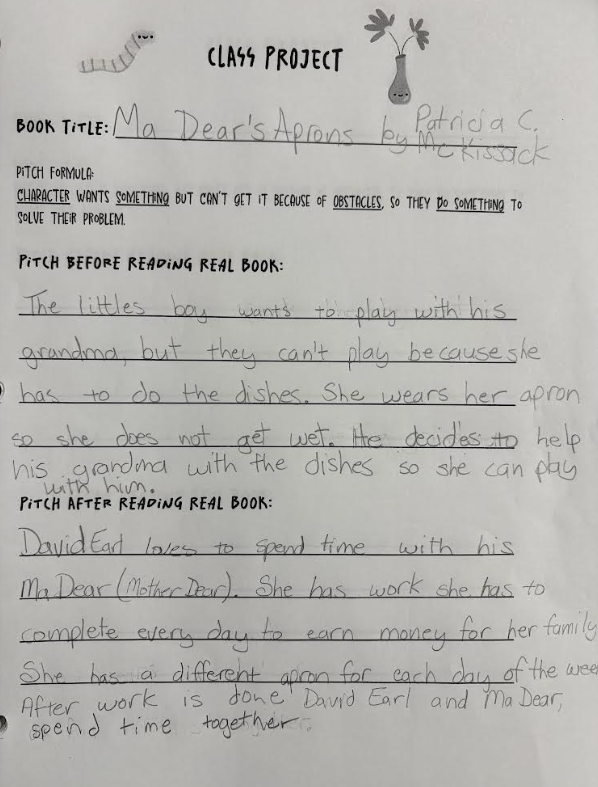 CLASS PROJECT
BOOK TITLE: Ma Dear's Aprons by Patricia C. McKissack
PITCH FORMULA:
CHARACTER WANTS SOMETHING BUT CAN'T GET IT BECAUSE OF OBSTACLES, SO THEY DO SOMETHING TO
SOLVE THEIR PROBLEM.
PITCH BEFORE READING REAL BOOK:
The littles boy wants to play with his
grandma, but they can't play because she
has to do the dishes. She wears her apron
so she does not get wet. He decides to help
his grandma with the dishes so she can play
with him.
PITCH AFTER READING REAL BOOK:
David Earl loves to spend time with his
Ma Dear (Mother Dear). She has work she has to
complete every day to earn money for her family
She has a different apron for each day of the wee
After work is done David Earl and Ma Dear,
spend time together.